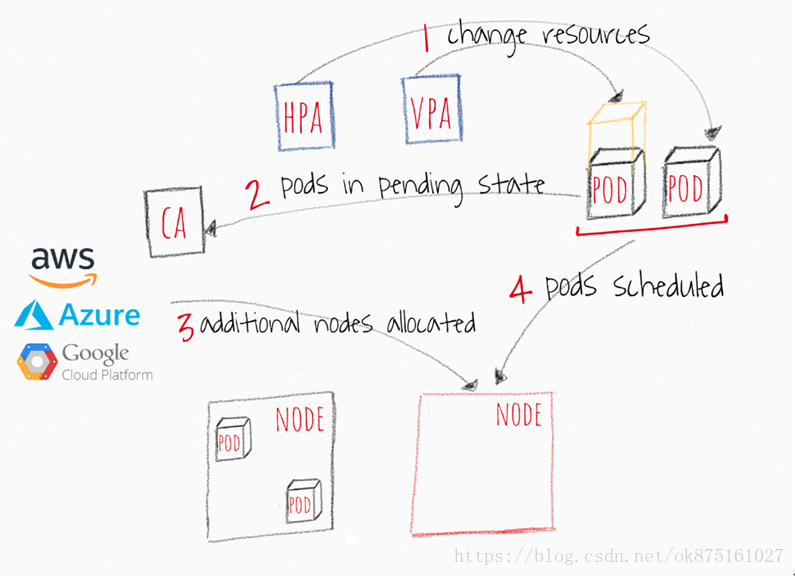 1 change resources
HPA
VPA
POD
POD
2 pods in pending state
CA
aws
Azure
Google
Cloud Platform
3 additional nodes allocated
4 pods scheduled
NODE
POD
POD
NODE
https://blog.csdn.net/ok875161027